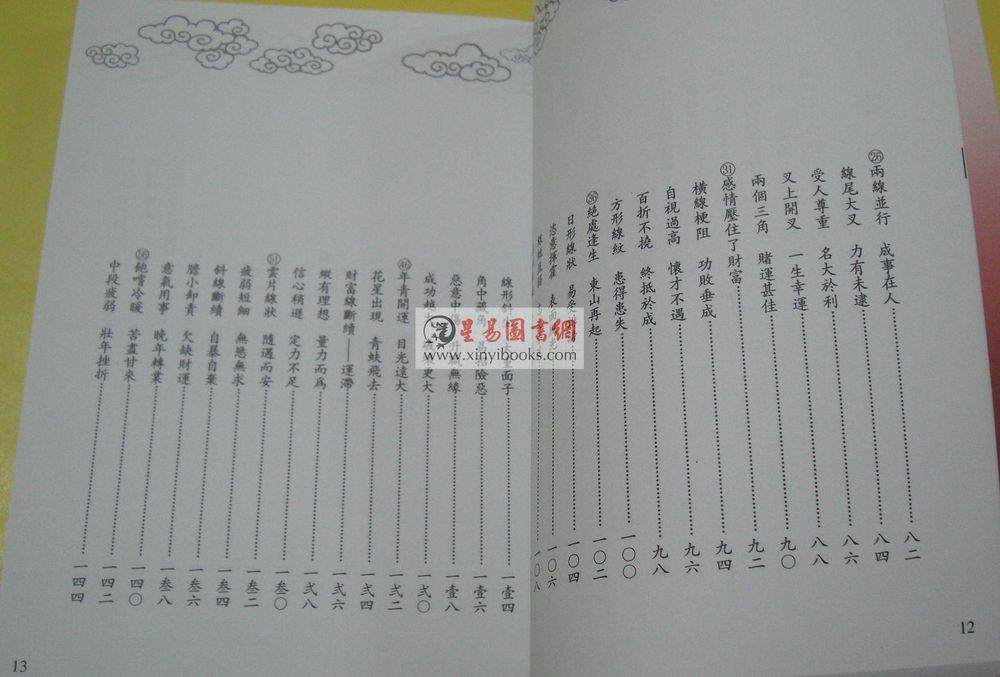 ㉖兩線並行 成事在人……八二
線尾大叉 力有未逮……八四
受人尊重 名大於利……八六
叉上開叉 一生幸運……八八
兩個三角 賭運甚佳……九〇
㉛感情壓住了財富……九二
橫線梗阻 功敗垂成……九四
自視過高 懷才不遇……九六
百折不撓 終抵於成……九八
方形線紋 患得患失……一〇〇
㊱絕處逢生 東山再起……一〇二
日形線狀 易受……一〇四
恣意揮霍 表面……一〇六
……一〇八
12
線形斜 重面子……一壹四
角中藏角 險惡……一壹六
惡意中傷 無緣……一壹八
成功 更大……一弍〇
㊻年青開運 目光遠大……一弍二
花星出現 青蚨飛去……一弍四
財富線斷續——運帶……一弍六
有理想 量力而為……一弍八
信心稍遜 定力不足……一叁〇
�51雲片線狀 隨遇而安……一叁二
疲弱短細 無慾無求……一叁四
斜線斷續 自暴自棄……一叁六
膽小卸責 欠缺財運……一叁八
意氣用事 晚年轉業……一四〇
56飽嚐冷暖 苦盡甘來……一四二
中段疲弱 壯年挫折……一四四
13
星易圖書網
www.xinyibooks.com